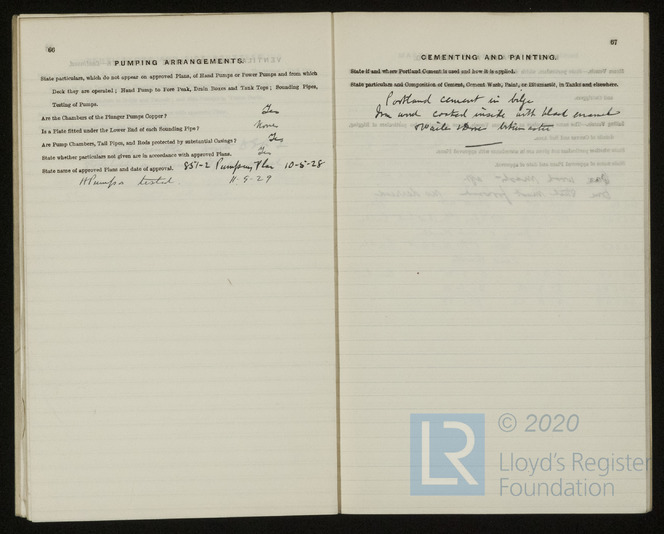 66
PUMPING ARRANGEMENTS.
State particulars, which do not appear on approved Plans, of Hand Pumps or Power Pumps and from which
Deck they are operated; Hand Pump to Fore Peak, Drain Boxes and Tank Tops; Sounding Pipes,
Testing of Pumps.
Are the Chambers of the Plunger Pumps Copper? Yes
Is a Plate fitted under the Lower End of each Sounding Pipe? None
Are Pump Chambers, Tail Pipes, and Rods protected by substantial Casings? Yes
State whether particulars not given are in accordance with approved Plans. Yes
State name of approved Plans and date of approval. 851-2 Pumping Plan 10-5-28
H Pumps tested 11-9-29
67
CEMENTING AND PAINTING.
State if and where Portland Cement is used and how it is applied.
State particulars and Composition of Cement, Cement Wash, Paint, or Bitumastic, in Tanks and elsewhere.
Portland cement in bilge
and coated inside with black enamel
© 2020
LR
Lloyd's Register
Foundation